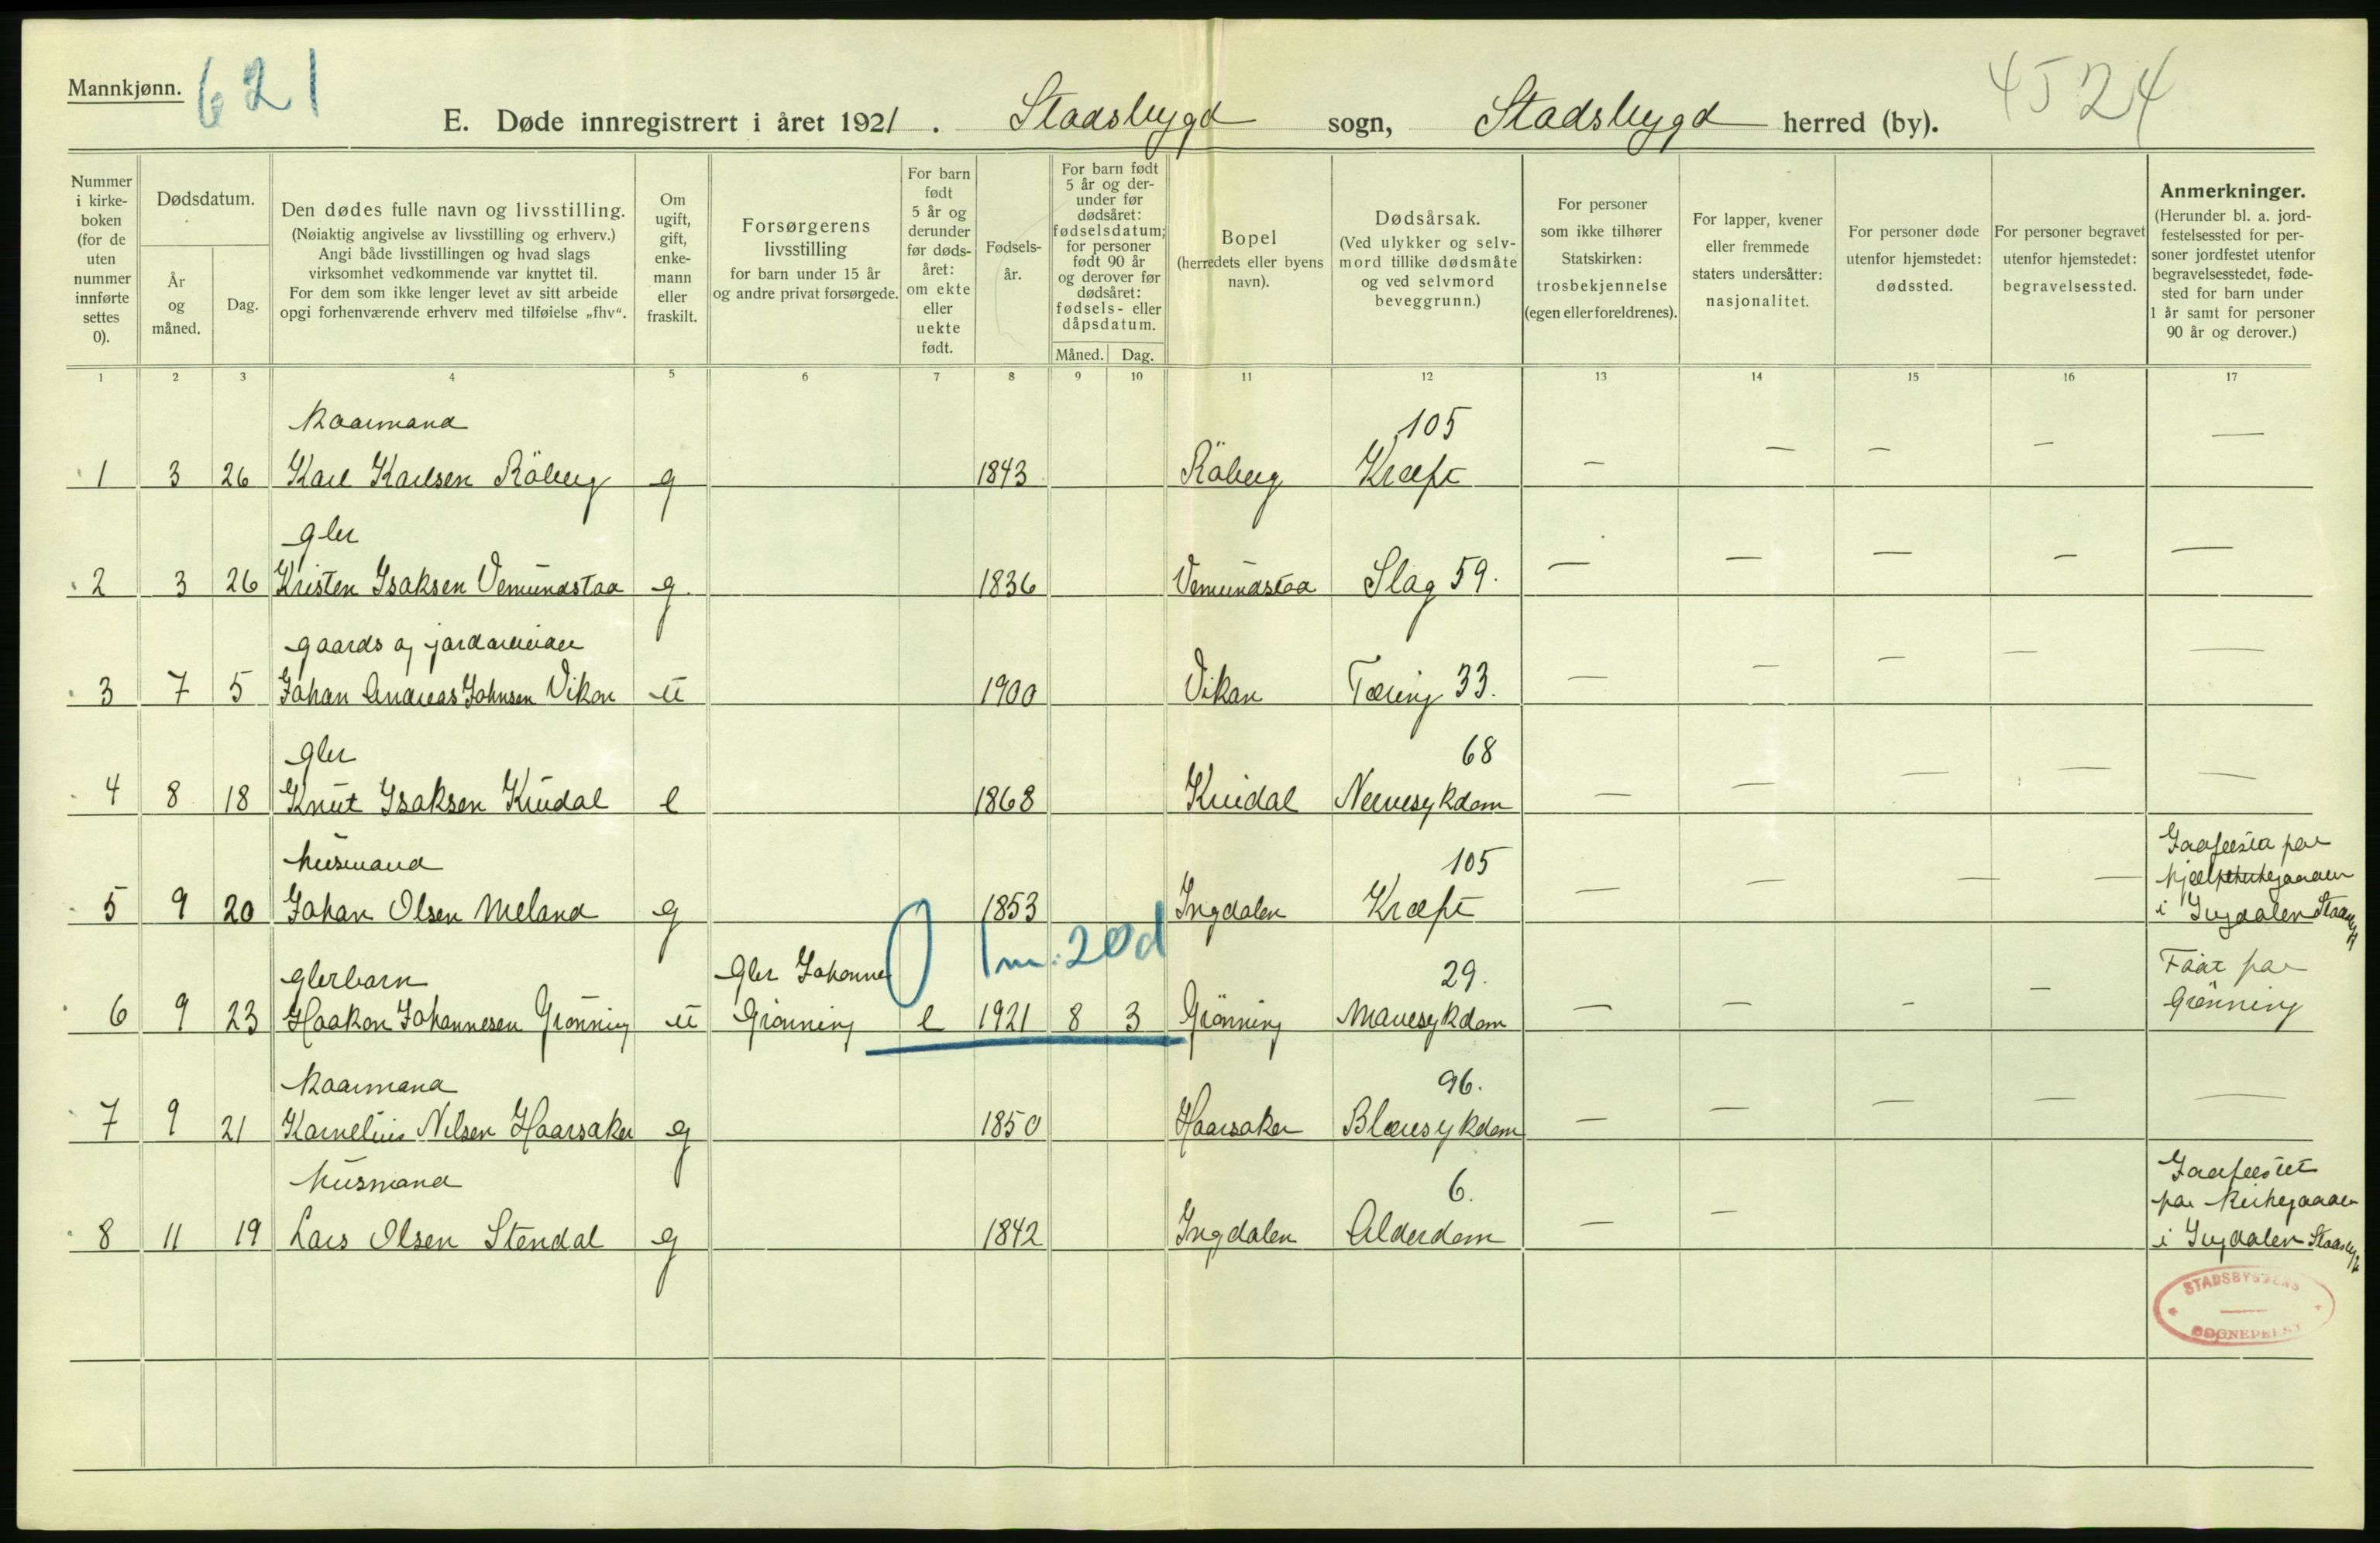 Mannkjønn.
621
4524
E. Døde innregistrert i året 1921. Stadsbygd sogn, Stadsbygd herred (by).
Nummer i kirke-boken (for de uten nummer innførte settes 0).
Dødsdatum.
År og måned.
Dag.
Den dødes fulle navn og livsstilling.
(Nøiaktig angivelse av livsstilling og erhverv.)
Angi både livsstillingen og hvad slags
virksomhet vedkommende var knyttet til.
For dem som ikke lenger levet av sitt arbeide
opgi forhenværende erhverv med tilføielse „fhv“.
Om ugift, gift, enke-mann eller fraskilt.
Forsørgerens livsstilling
for barn under 15 år
og andre privat forsørgede.
For barn født 5 år og derunder før døds-året: om ekte eller uekte født.
Fødsels-år.
For barn født 5 år og der-under før dødsåret: fødselsdatum; for personer født 90 år og derover før dødsåret: fødsels- eller dåpsdatum.
Måned. Dag.
Bopel
(herredets eller byens navn).
Dødsårsak.
(Ved ulykker og selv-mord tillike dødsmåte og ved selvmord beveggrunn.)
For personer som ikke tilhører Statskirken: trosbekjennelse (egen eller foreldrenes).
For lapper, kvener eller fremmede staters undersåtter: nasjonalitet.
For personer døde utenfor hjemstedet: dødssted.
For personer begravet utenfor hjemstedet: begravelsessted.
Anmerkninger.
(Herunder bl. a. jord-festelsessted for per-soner jordfestet utenfor begravelsesstedet, føde-sted for barn under 1 år samt for personer 90 år og derover.)
1 2 3 4 5 6 7 8 9 10 11 12 13 14 15 16 17
Kaarmand 105
1 3 26 Karl Karlsen Råberg g 1843 Råberg Kræft — — — — —
gbr
2 3 26 Kristen Isaksen Vemundstad g. 1836 Vemundstad Slag 59. — — — — —
gaards og jordarbeider
3 7 5 Johan Andreas Johnsen Vikan u 1900 Vikan Tæring 33. — — — — —
gbr 68
4 8 18 Knut Isaksen e 1868 Nervesykdom — — — — —
husmand 105
5 9 20 Johan Olsen Meland g 1853 Ingdalen Kræft — — — — Jordfestet paa
i Ingdalen Stadsbygd
1 m: 20d
gbrbarn Gbr Johannes 29. Født paa
6 9 23 Haakon Johannesen Grønning u Grønning e 1921 8 3 Grønning Mavesykdom — — — — Grønning
Kaarmand 96.
7 9 21 Kornelius Nilsen Haarsaker g 1850 Haarsaker Blæresykdom — — — — —
husmand 6. Jordfestet
paa kirkegaarden
8 11 19 Lars Olsen Stendal g 1842 Ingdalen Alderdom — — i Ingdalen Stadsbygd
STADSBYGDENS
SOGNEPREST